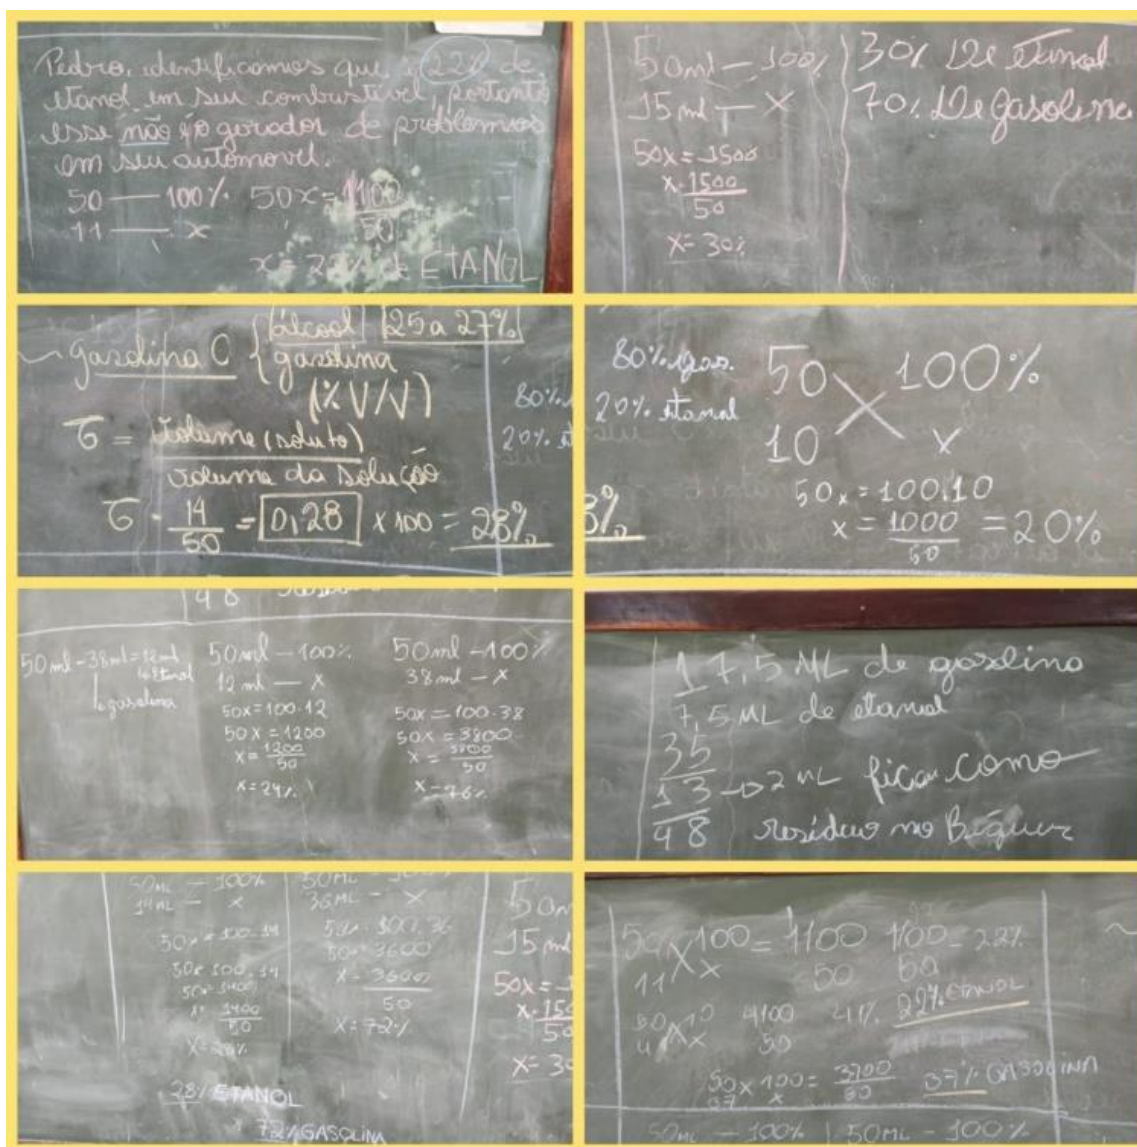 Pedro, identificamos que é 22% de
etanol em seu combustível, portanto
esse não é o gerador de problemas
em seu automovel.
50 — 100% 50x = 1100
50
11 — x
x = 22% de ETANOL
50ml — 100%
15ml — x
50x = 1500
x = 1500
50
x = 30%
30% De Etanol
70% De gasolina
~ gasolina C { álcool 25 a 27%
gasolina
(% V/V)
80%
20% et
τ = volume (soluto)
volume da solução
τ = 14 = 0,28 x 100 = 28%
50
80% gas.
20% etanol
50 100%
10 x
50x = 100.10
x = 1000 = 20%
50
8%
48
50ml - 38ml = 12ml
etanol
gasolina
50ml — 100%
12ml — x
50x = 100 . 12
50x = 1200
x = 1200
50
x = 24%
50ml — 100%
38ml — x
50x = 100 . 38
50x = 3800
x = 3800
50
x = 76%
17,5 ML de gasolina
7,5 ML de etanol
35
13 → 2 ML ficou como
48 resíduo no Béquer
50ML — 100%
14ML — x
50x = 100.14
50x 100.14
50x 1400
x 1400
50
x = 28%
28% ETANOL
36ML — x
50x = 3600
x = 3600
50
x = 72%
72% GASOLINA
15ml
50x =
x =
x = 30
50 x 100 = 1100 1100 = 22%
11 x 50 50
22% ETANOL
4100 41%
50
50 x 100 = 3700 37% GASOLINA
37 x 50
50ML — 100% 50ML — 100%